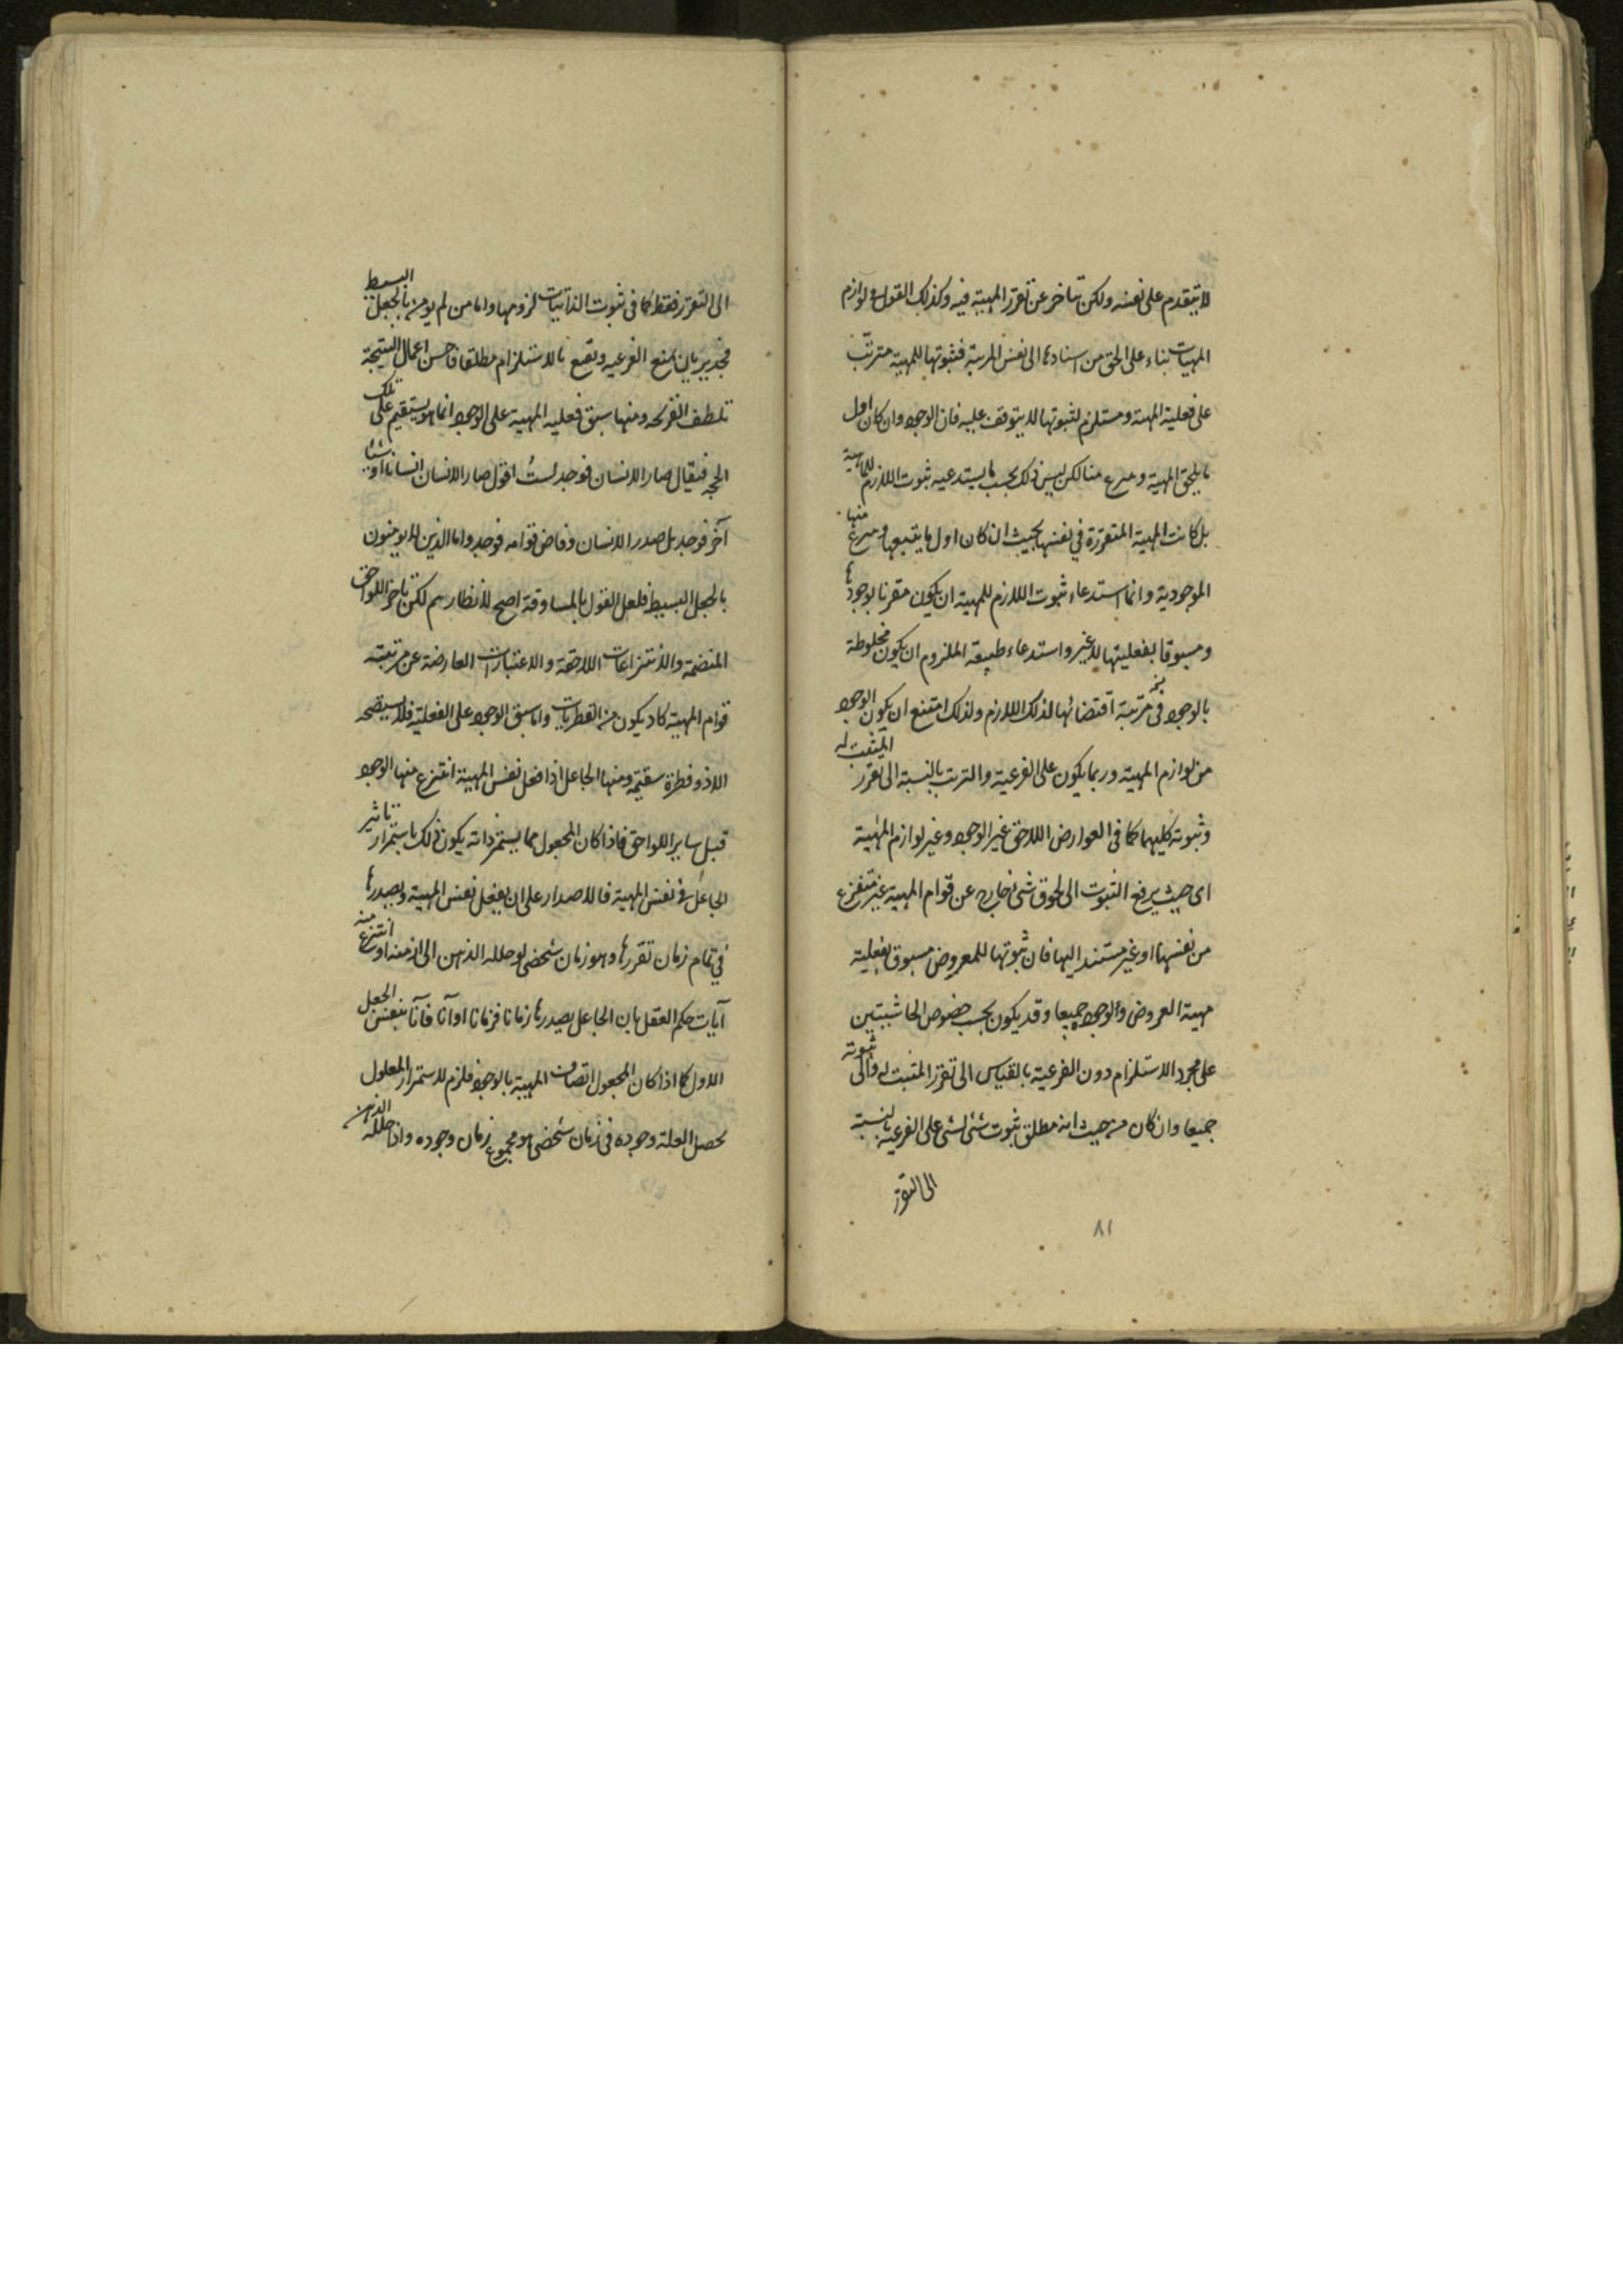 لا يتقدم على نفسه ولكن تاخر عن تقرر المهية فيه وكذلك القول في لوازم
المهيات بناء على الحق من اسنادها الى نفس المهية فثبوتها للمهية مترتب
على فعلية المهية ومستلزم لثبوتها لا يتوقف عليه فان الوجود وان كان اول
ما يلحق المهية و منا لكن ليس ذلك بحسب ما يستدعيه ثبوت اللازم للماهية
بل كانت المهية المتقررة في نفسها بحيث ان كان اول ما يتبعها و منها
الموجودية وانما استدعاء ثبوت اللازم للمهية ان يكون مقرنا بوجودها
ومسبوقا بفعليتها لا غير واستدعاء طبيعة الملزوم ان يكون مخلوطة
بالوجود في مرتبة اقتضائها لذلك اللازم ولذلك امتنع ان يكون الوجود
من لوازم المهية وربما يكون على الفرعية والترتب بالنسبة الى تقرر المثبت له
وثبوته كليهما كما في العوارض اللاحق غير الوجود وغير لوازم المهية
اى حيث يرفع الثبوت الى لحوق شئ خارج عن قوام المهية غير منتزع
من نفسها او غير مستند اليها فان ثبوتها للمعروض مسبوق بفعلية
مهية المعروض والوجود جميعا وقد يكون بحسب خصوص الحاشيتين
على مجرد الاستلزام دون الفرعية بالقياس الى تقرر المثبت له والى ثبوته
جميعا وان كان من حيث انه مطلق ثبوت شئ لشئ على الفرعية بالنسبة
الى التقرر
٨١
الى التقرر فقط كما في ثبوت الذاتيات لزومها واما من لم يؤمن بالجعل البسيط
فجدير بان يمنع الفرعيه ويقنع بالاستلزام مطلقا فاحسن اعمال
تلطف القريحه ومنها سبق فعليه المهية على الوجود انما هو يستقيم على تلك
الجهة فيقال صار الانسان فوجد لست اقول صار الانسان انسانا او شيئا
آخر فوجد بل صدر الانسان وفاض قوامه فوجد واما الذين لا يؤمنون
بالجعل البسيط فلعل القول بالمساوقة اصح لانظارهم لكن تاخر اللواحق
المنضمة والانتزاعات اللاحقة والاعتبارات العارضة عن مرتبته
قوام المهية كاد يكون من الفطريات واما سبق الوجود على الفعلية فلا يستصحه
الا ذو فطرة سقيمة ومنها الجاعل اذا فعل نفس المهية انتزع منها الوجود
قبل ساير اللواحق فاذا كان المجعول مما يستمر ذاته يكون ذلك باستمرار تاثير
الجاعل في نفس المهية فالاصدار على ان يفعل نفس المهية ويصدرها
في تمام زمان تقررها وهو زمان شخصى لو حلله الذهن الى ازمنه او انتزع منه
آيات حكم العقل بان الجاعل يصدرها زمانا فزمانا او آنا فآنا بنفس الجعل
الاول كما اذا كان المجعول اتصاف المهية بالوجود فلزم لاستمرار المعلول
بحصل العلة وجوده في زمان شخصى هو مجموع زمان وجوده واذا حلله الذهن